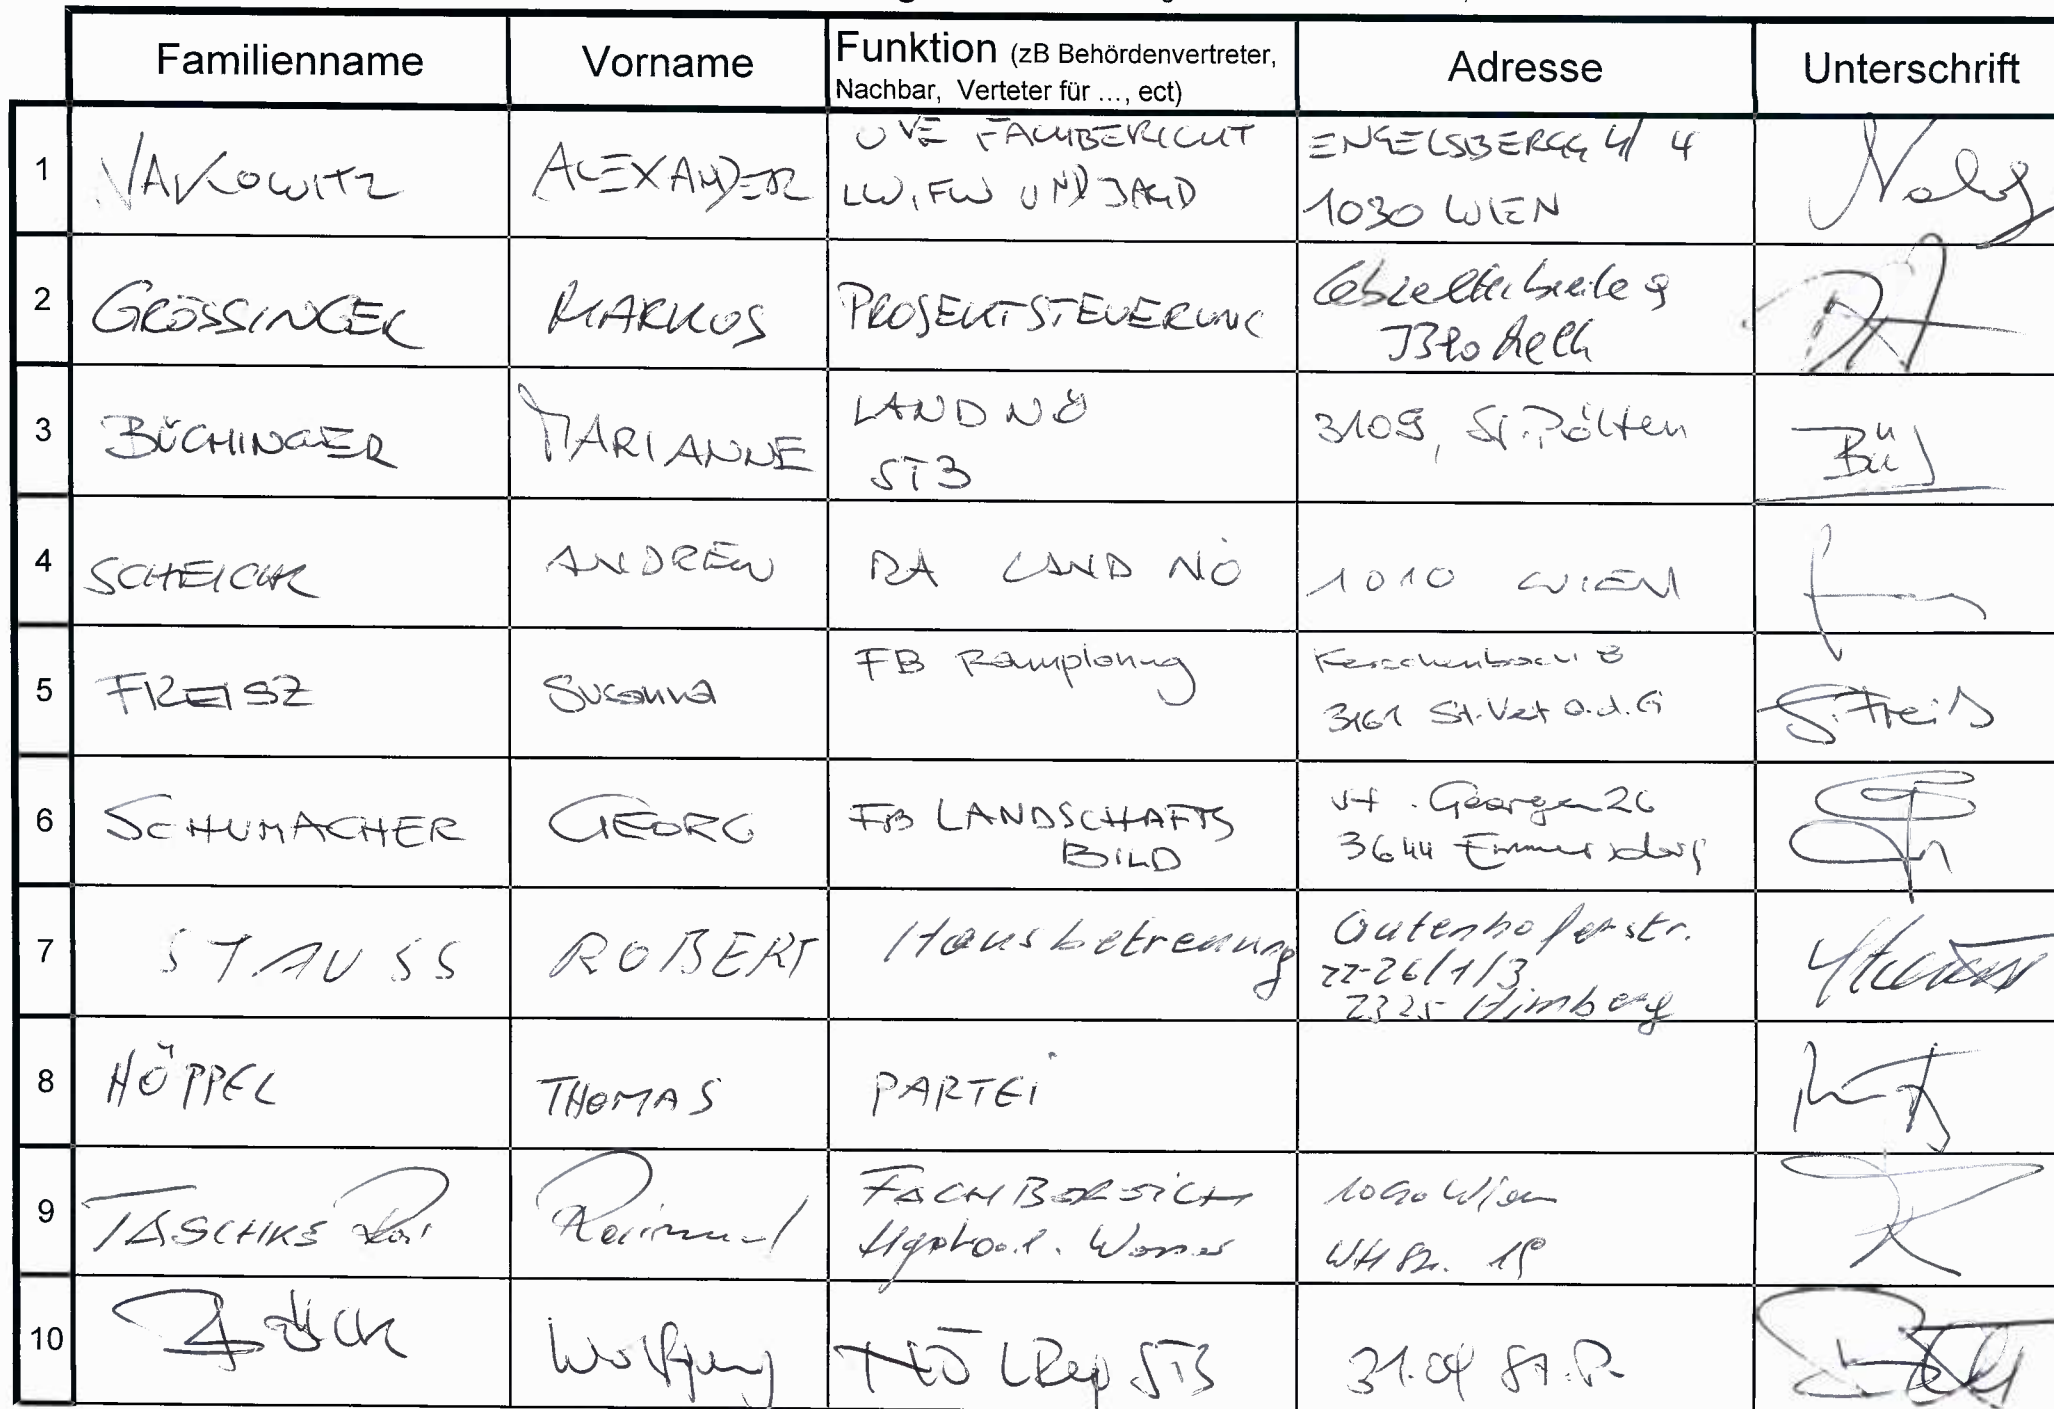 Familienname Vorname Funktion (zB Behördenvertreter, Nachbar, Verteter für ..., ect) Adresse Unterschrift
1 VAKOWITZ ALEXANDER UVE FACHBERICHT ENGELSBERGG 4/ 4
LW, FW UND JAGD 1030 WIEN
2 GRÖSSINGER MARKUS PROJEKTSTEUERUNG
3 BÜCHINGER MARIANNE LAND NÖ 3109, St. Pölten Bü
ST3
4 SCHEICHR ANDREW RA LAND NÖ 1010 WIEN
5 FREISZ Susanna FB Raumplanung Kerschenbach 8
3161 St. Veit a.d. G S. Freis
6 SCHUMACHER GEORG FB LANDSCHAFTS St. Georgen 26
BILD 3644 Emmersdorf
7 STAUSS ROBERT Hausbetreuung Gutenhoferstr.
22-26/1/3
2325 Himberg
8 HÖPPEL THOMAS PARTEI
9 TASCHKE Raimund FACHBEREICH Wien
Wasser 19
10 Wolfgang NÖ LReg ST3 3109 St. P.